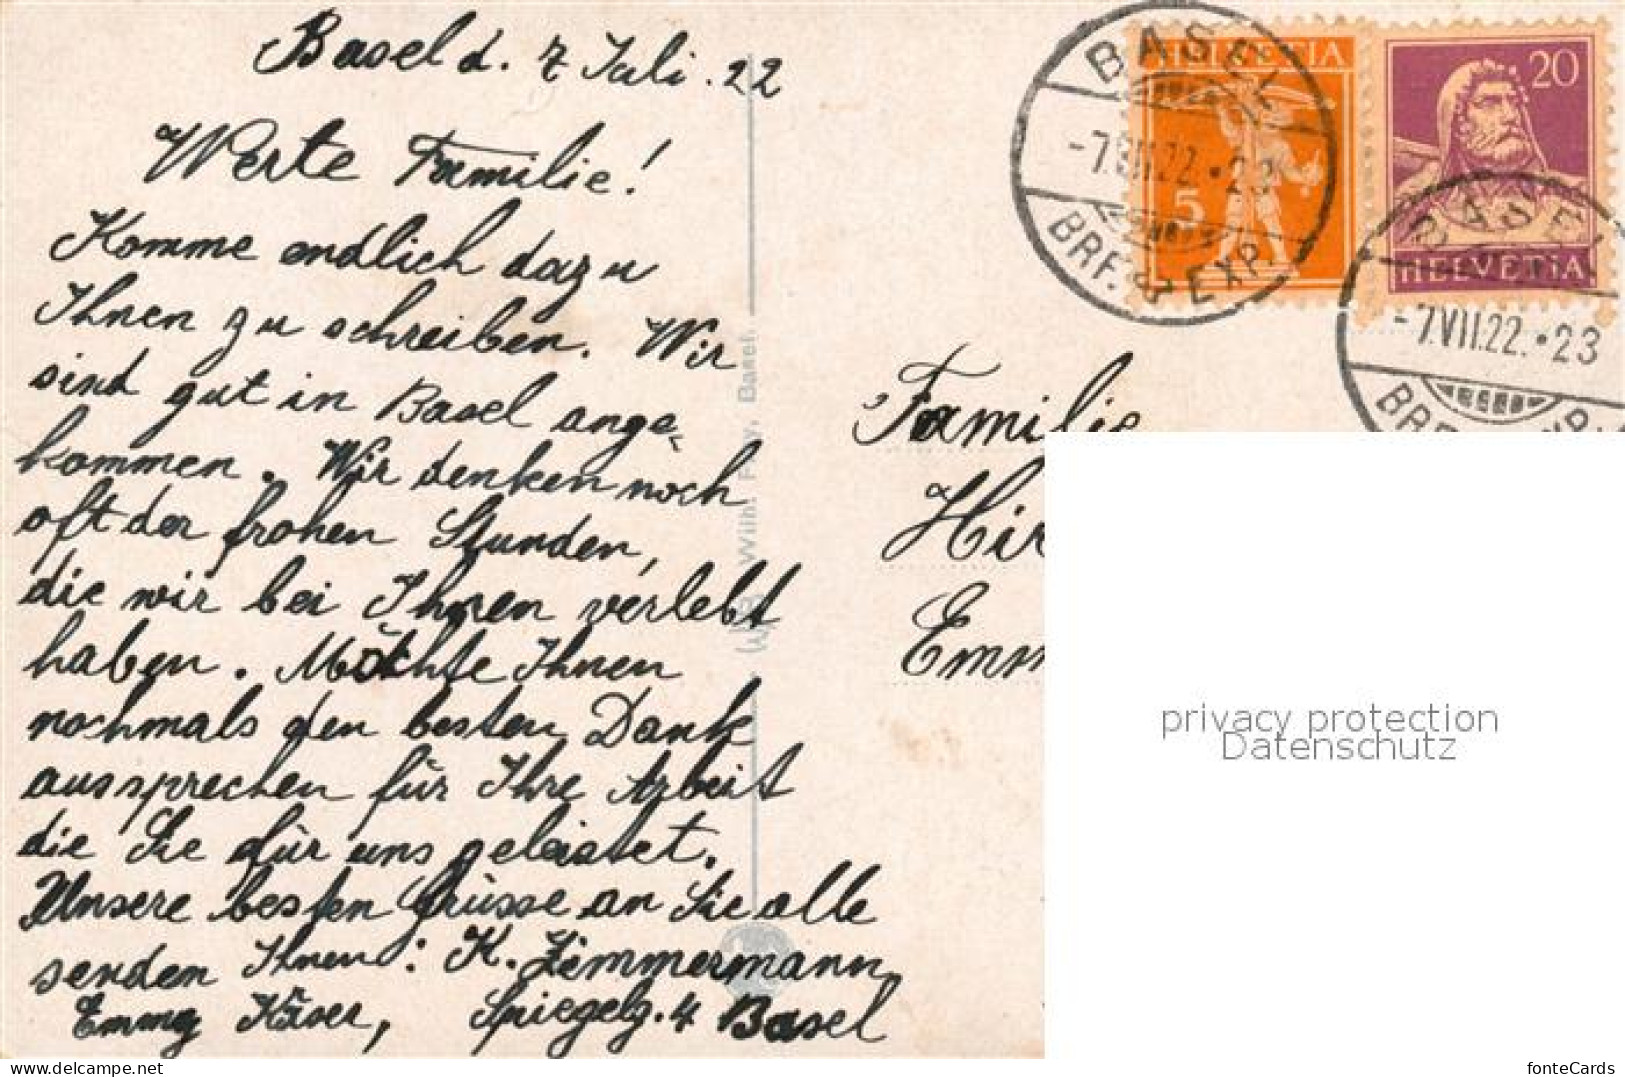 Basel d. 7 Juli. 22
Werte Familie!
Komme endlich dazu
Ihnen zu schreiben. Wir
sind gut in Basel ange-
kommen. Wir denken noch
oft der frohen Stunden,
die wir bei Ihnen verlebt
haben. Möchte Ihnen
nochmals den besten Dank
aussprechen für Ihre Arbeit
die Sie für uns geleistet.
Unsere besten Grüsse an Sie alle
senden Ihnen: K. Zimmermann
Emmy Käser, Spiegelg. 4 Basel
Wilh. Frey, Basel.
BASEL
-7.VII.22.•23
BRF. & EXP.
HELVETIA
5
20
HELVETIA
BASEL
-7.VII.22.•23
Familie
Hir
Emm
privacy protection
Datenschutz
www.delcampe.net
fonteCards